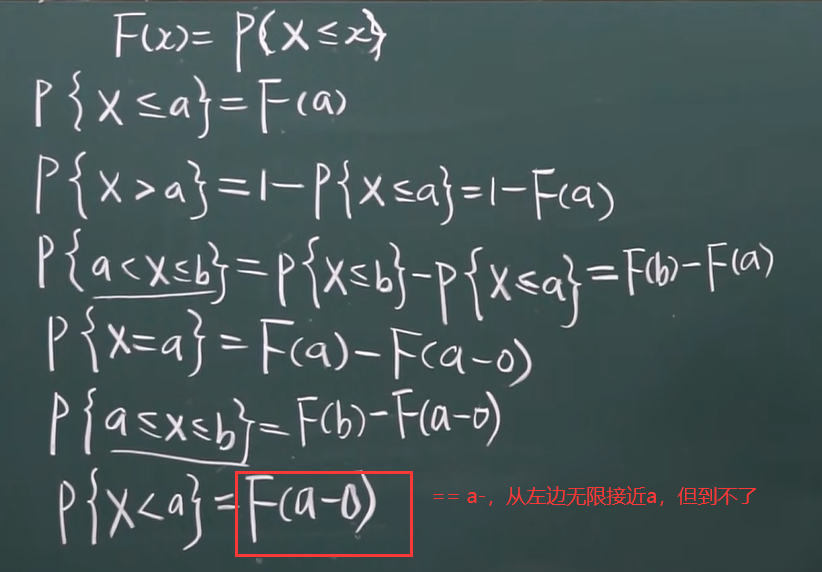 F(x)=P{X≤x}
P{X≤a}=F(a)
P{X>a}=1-P{X≤a}=1-F(a)
P{a<X≤b}=P{X≤b}-P{X≤a}=F(b)-F(a)
P{X=a}=F(a)-F(a-0)
P{a≤X≤b}=F(b)-F(a-0)
P{X<a}=F(a-0) == a-，从左边无限接近a，但到不了